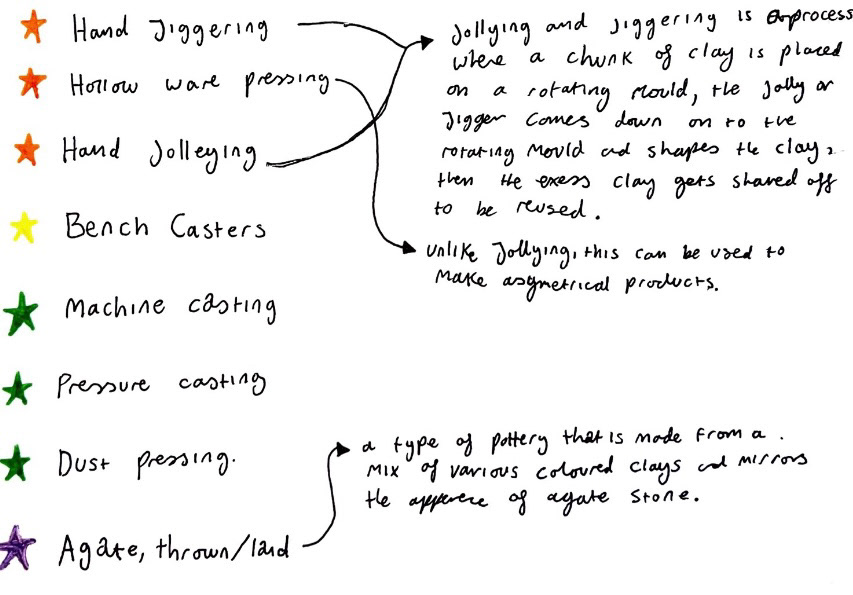 Hand Jiggering
Hollow ware pressing
Hand Jolleying
Bench Casters
Machine casting
Pressure casting
Dust pressing.
Agate, thrown/laid
Jollying and jiggering is a process
where a chunk of clay is placed
on a rotating mould, the Jolly or
Jigger comes down on to the
rotating mould and shapes the clay,
then the exess clay gets shaved off
to be reused.
unlike Jollying, this can be used to
make asymetrical products.
a type of pottery that is made from a
mix of various coloured clays and mirrors
the of agate stone.